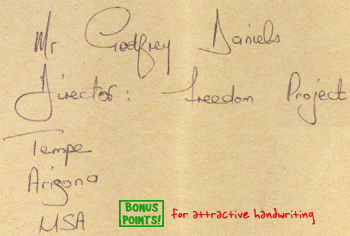 Mr Godfrey Daniels
Director: Freedom Project
Tempe
Arizona
USA
BONUS POINTS! for attractive handwriting